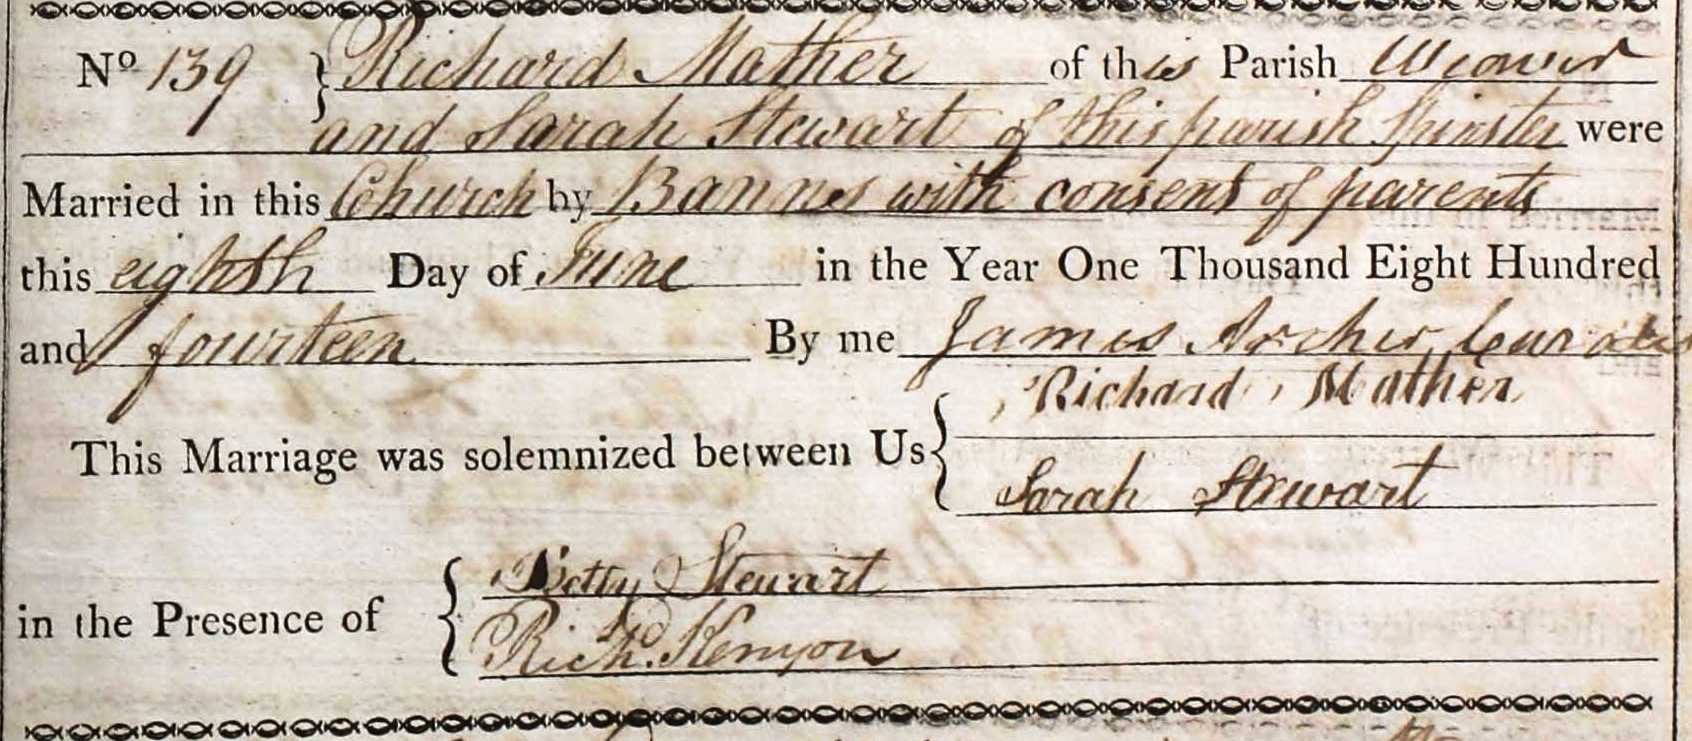 No 139 } Richard Mather of this Parish Weaver
and Sarah Stewart of this parish Spinster were
Married in this Church by Banns with consent of parents
this eighth Day of June in the Year One Thousand Eight Hundred
and fourteen By me James Archer, Curate
This Marriage was solemnized between Us { Richard Mather
Sarah Stewart
in the Presence of { Betty Stewart
Richd. Kenyon